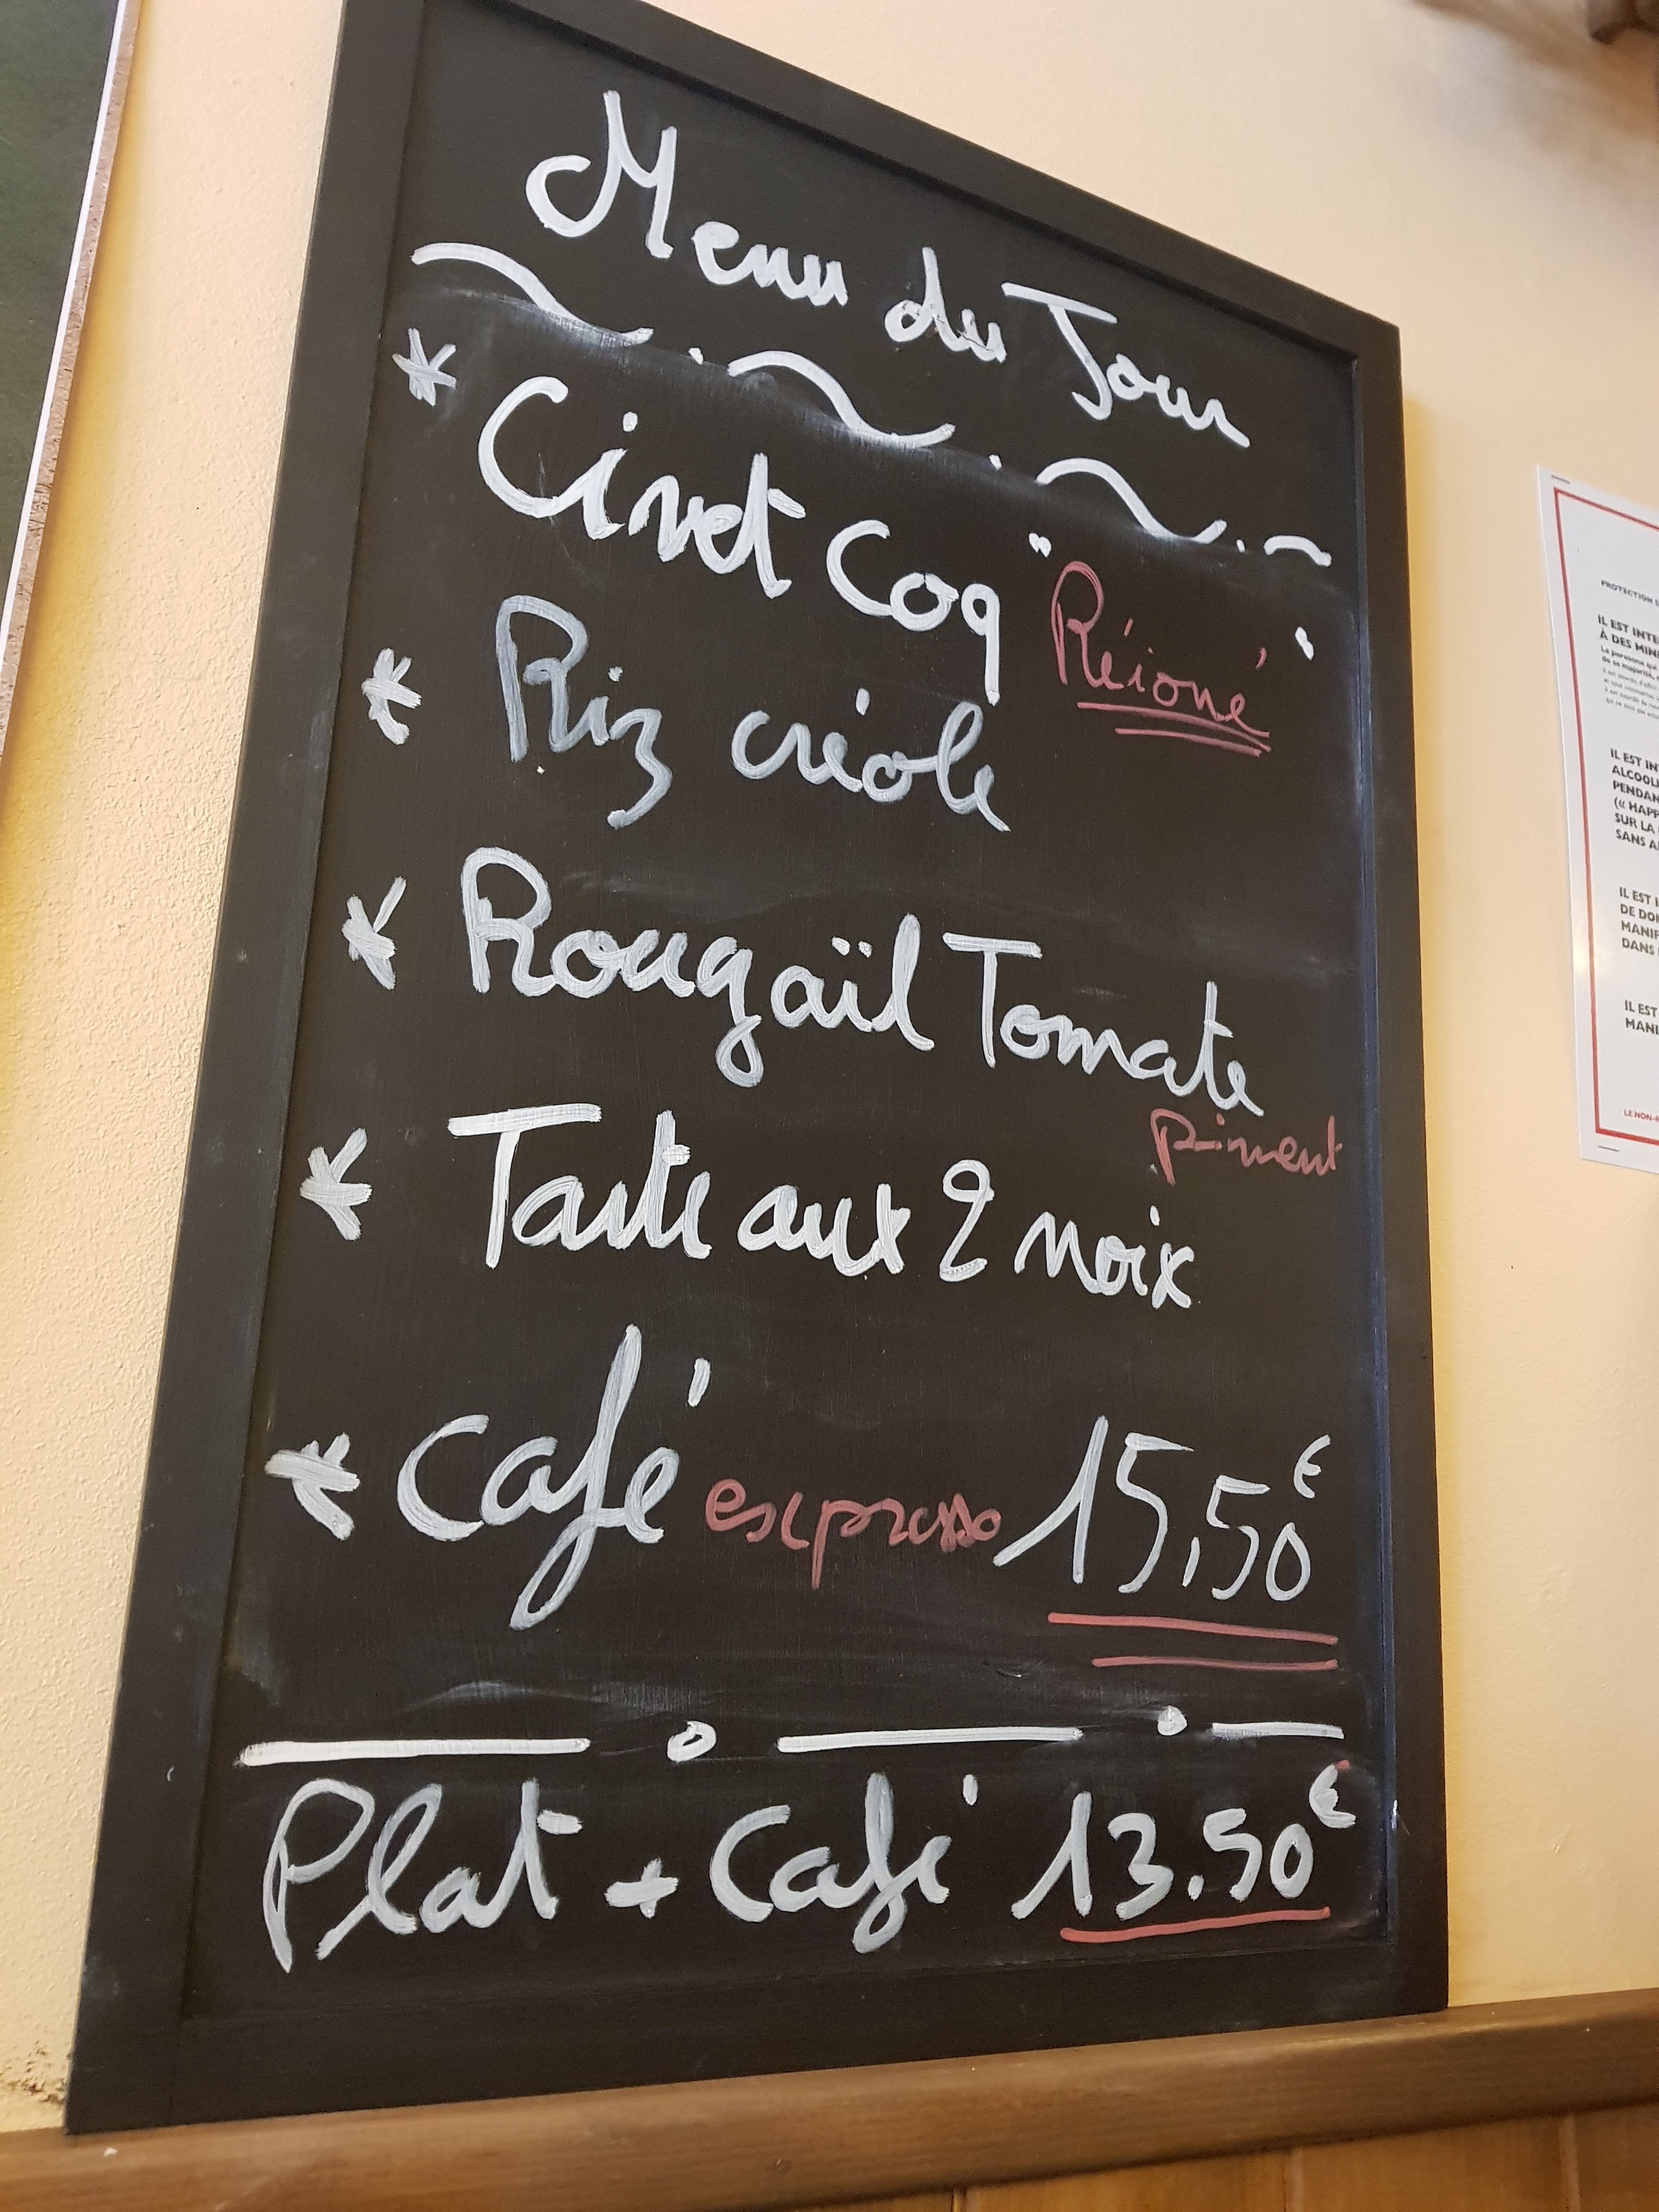 Menu du Jour
* Civet Coq "Réioné"
* Riz créole
* Rougaïl Tomate
piment
* Tarte aux 2 noix
* Café expresso 15,50€
Plat + Café 13.50€
PROTECTION D
IL EST INTE
À DES MINE
IL EST IN
ALCOOLI
PENDAN
(« HAPP
SUR LA
SANS A
IL EST I
DE DO
MANIF
DANS
IL EST
MANI
LE NON-R